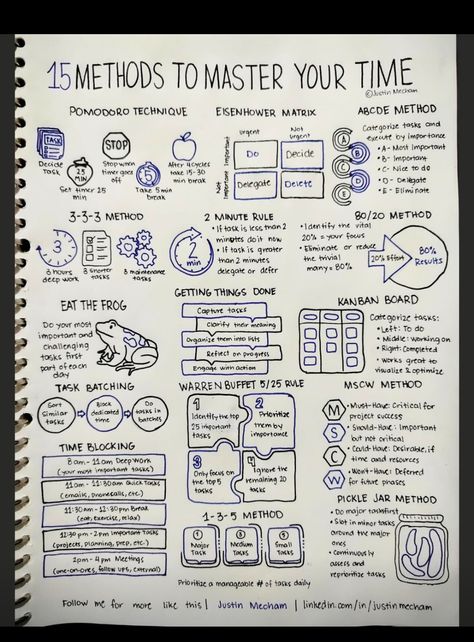 15 METHODS TO MASTER YOUR TIME
©Justin Mecham
POMODORO TECHNIQUE
TASK
Decide
Task
25
MIN
Set timer 25
min
STOP
Stop when
timer goes
off
5
Take 5 min
break
After 4 cycles
take 15-30
min break
EISENHOWER MATRIX
Urgent
Not
Urgent
Important
Not Important
Do
Decide
Delegate
Delete
ABCDE METHOD
Categorize tasks and
execute by importance
A
B
C
D
E
• A- Most Important
• B- Important
• C- Nice to do
• D- Delegate
• E- Eliminate
3-3-3 METHOD
3
3 hours
deep work
3 shorter
tasks
3 maintenance
tasks
2 MINUTE RULE
2
min
• If task is less than 2
minutes do it now
• If task is greater
than 2 minutes
delegate or defer
80/20 METHOD
• Identify the vital
20% = your focus
• Eliminate or reduce
the trivial
many = 80%
20% Effort
80%
Results
EAT THE FROG
Do your most
important and
challenging
tasks first
part of each
day
GETTING THINGS DONE
Capture tasks
Clarify their meaning
Organize them into lists
Reflect on progress
Engage with action
KANBAN BOARD
Categorize tasks:
• Left: To do
• Middle: Working on
• Right: Completed
• Works great to
visualize & optimize
TASK BATCHING
Sort
similar
tasks
Block
dedicated
time
Do
tasks in
batches
WARREN BUFFET 5/25 RULE
1
Identify the top
25 important
tasks
2
Prioritize
them by
importance
3
Only focus on
the top 5
tasks
4
Ignore the
remaining 20
tasks
MSCW METHOD
M
• Must-Have: Critical for
project success
S
• Should-Have: Important
but not critical
C
• Could-Have: Desirable, if
time and resources
W
• Won't-Have: Deferred
for future phases
TIME BLOCKING
8am - 11am Deep Work
(your most important tasks)
11am - 11:30am Quick Tasks
(emails, phone calls, etc.)
11:30am - 12:30pm Break
(eat, exercise, relax)
12:30pm - 2pm Important Tasks
(projects, planning, prep, etc.)
2pm - 4pm Meetings
(one-on-ones, follow ups, external)
1-3-5 METHOD
1
Major
Task
3
Medium
Tasks
5
Small
Tasks
Prioritize a manageable # of tasks daily
PICKLE JAR METHOD
• Do major tasks first
• Slot in minor tasks
around the
major ones
• Continuously
assess and
reprioritize tasks
Follow me for more like this | Justin Mecham | linkedin.com/in/justinmecham